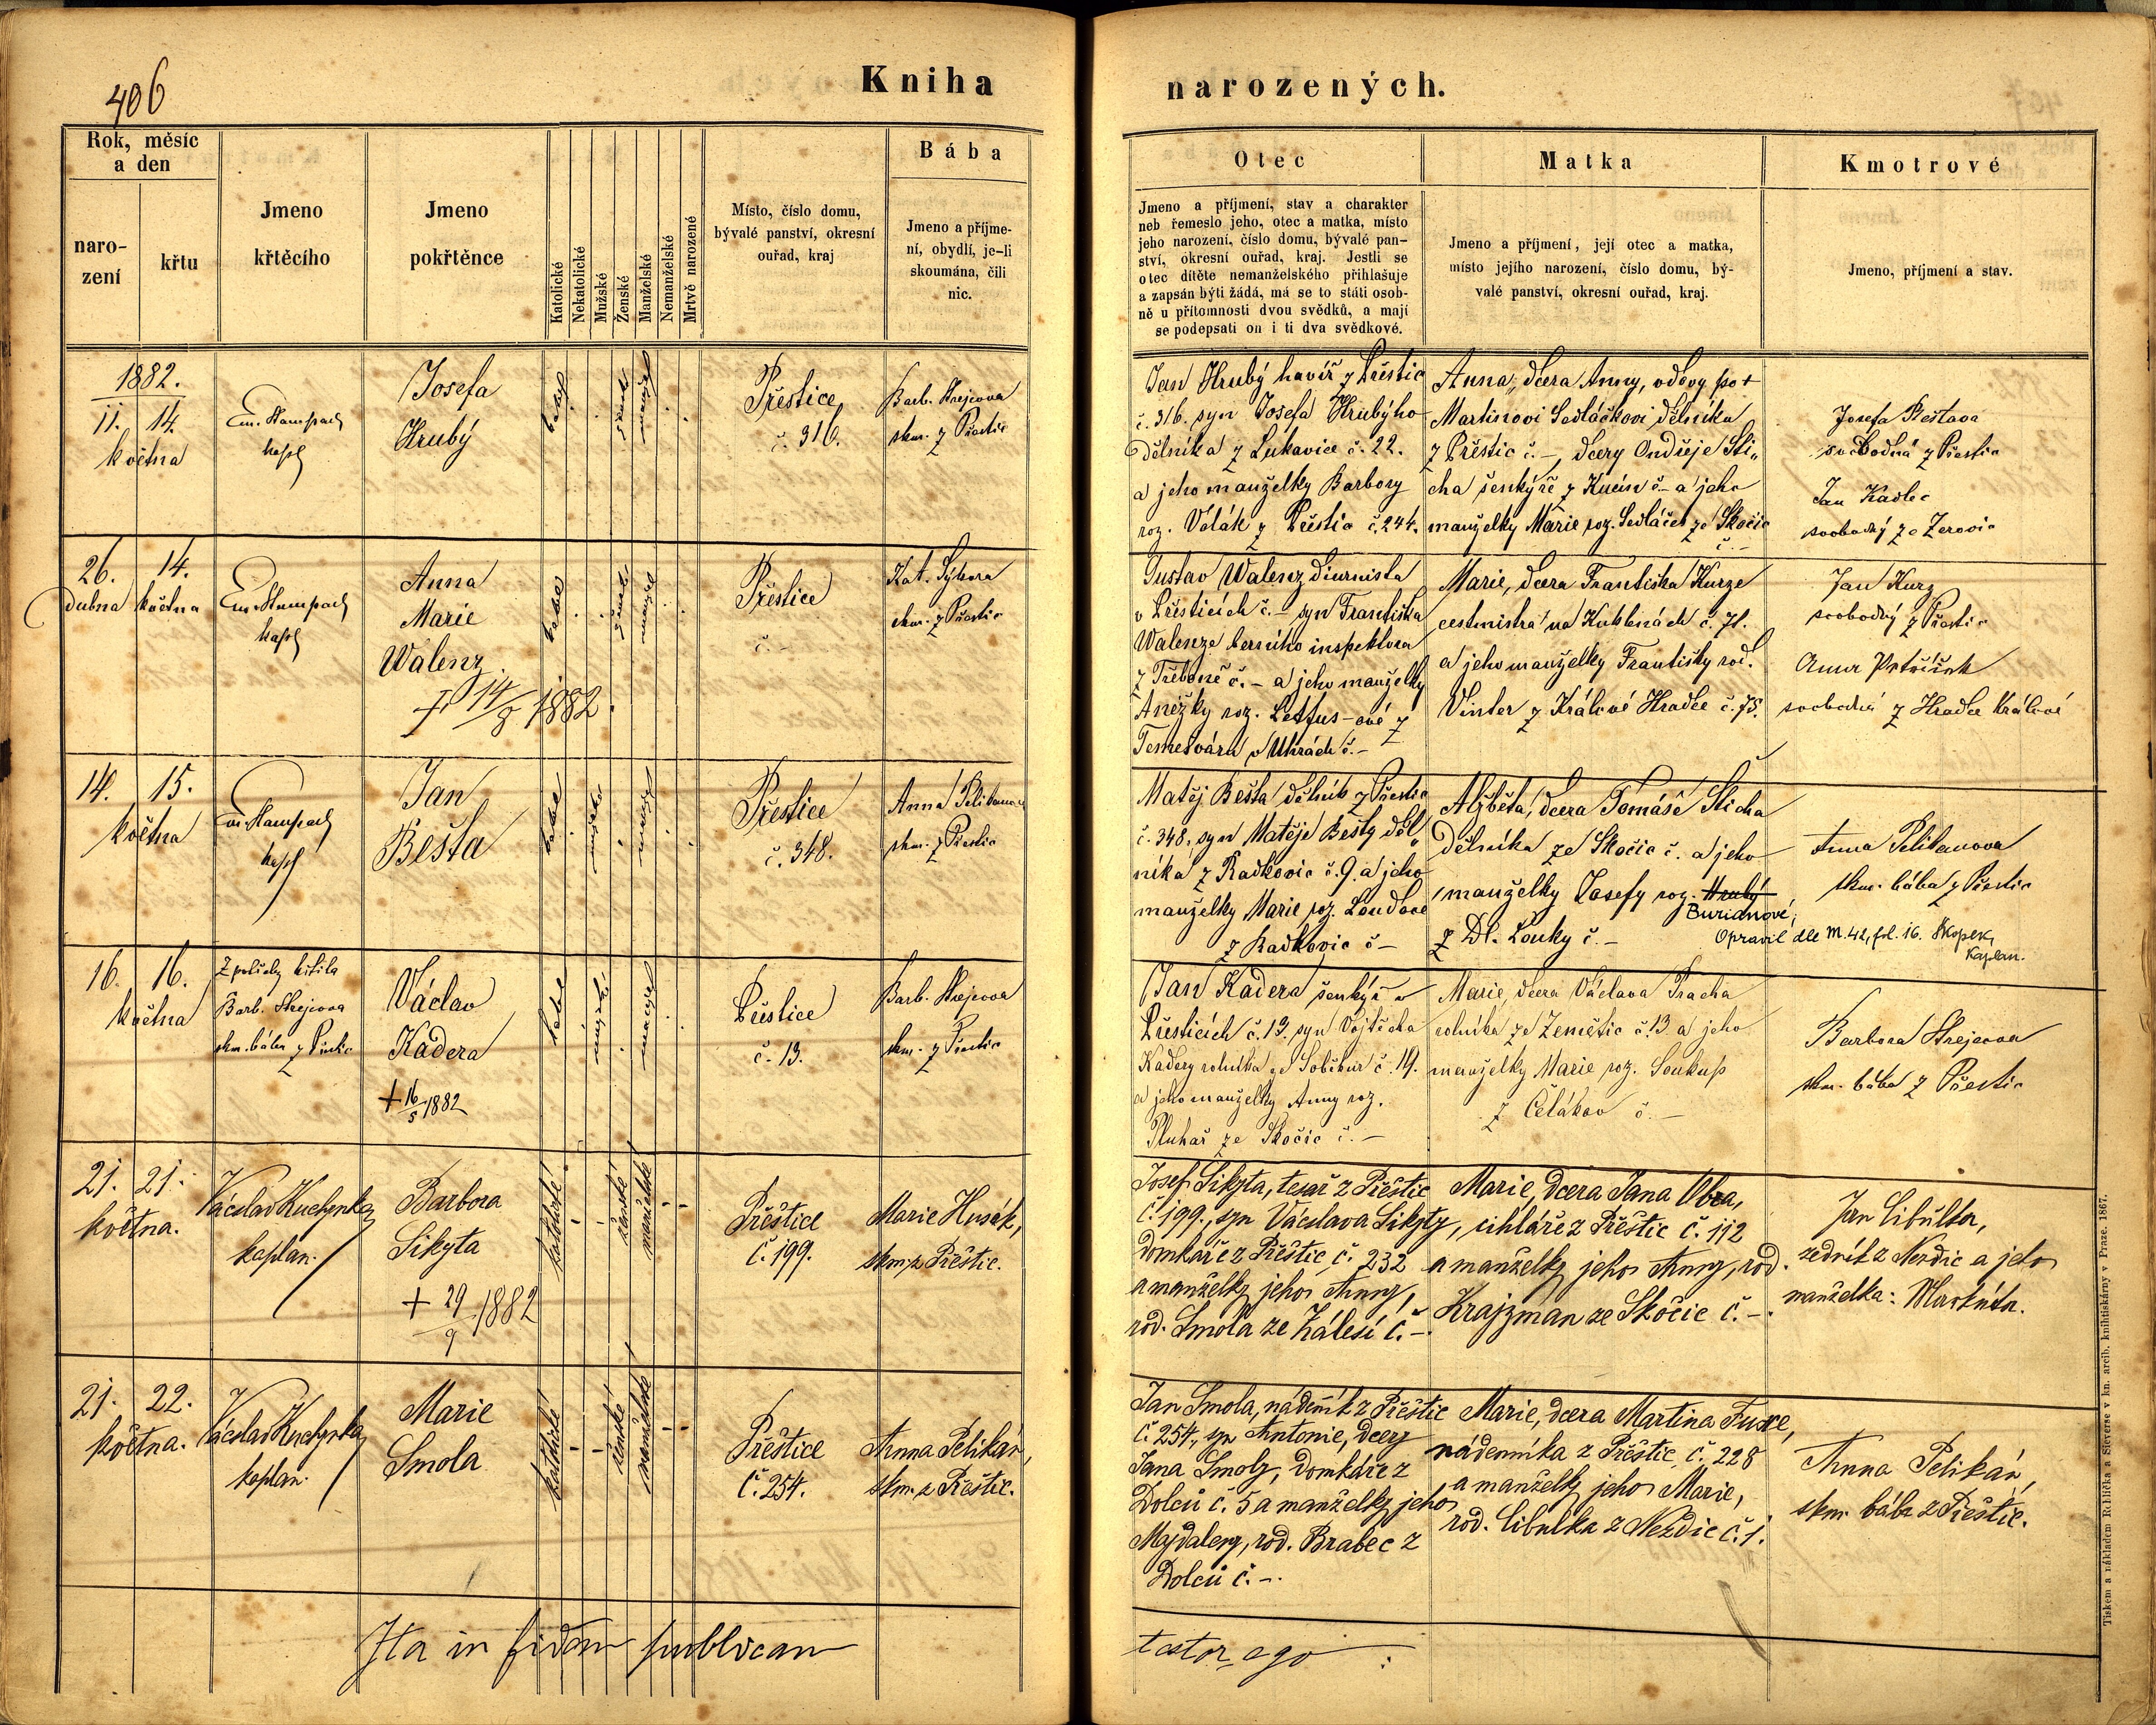 406
Kniha
narozených.
Rok, měsíc
a den
naro-
zení
křtu
Jmeno
křtěcího
Jmeno
pokřtěnce
Katolické
Nekatolické
Mužské
Ženské
Manželské
Nemanželské
Mrtvě narozené
Místo, číslo domu,
bývalé panství, okresní
ouřad, kraj
Bába
Jmeno a příjme-
ní, obydlí, je-li
skoumána, čili
nic.
Otec
Jmeno a příjmení, stav a charakter
neb řemeslo jeho, otec a matka, místo
jeho narození, číslo domu, bývalé pan-
ství, okresní ouřad, kraj. Jestli se
otec dítěte nemanželského přihlašuje
a zapsán býti žádá, má se to státi osob-
ně u přítomnosti dvou svědků, a mají
se podepsati on i ti dva svědkové.
Matka
Jmeno a příjmení, její otec a matka,
místo jejího narození, číslo domu, bý-
valé panství, okresní ouřad, kraj.
Kmotrové
Jmeno, příjmení a stav.
1882.
11. 14.
května
Em. Stampach
kapl
Josefa
Hrubý
Přestice
č. 316.
Barb. Krejcova
skm. z Přestic
Jan Hrubý havíř z Přestic
č. 316. syn Josefa Hrubýho
dělníka z Lukavice č. 22.
a jeho manželky Barbory
roz. Volák z Přestic č. 244.
Anna, dcera Anny, vdovy po +
Martinovi Sedláčkovi dělníka
z Přestic č. -, dcery Ondřeje Sti„
cha šenkýře z Kucín č - a jeho
manželky Marie roz. Sedláček ze Skočic
č. -
Josefa Beštava
svobodná z Přestic
Jan Kadlec
svobodný ze Zerovic
26. 14.
dubna května
Em. Stampach
kapl
Anna
Marie
Walenz
+ 14/8 1882.
Přestice
č. -
Kat. Sýkora
skm. z Přestic
Gustav Walenz diurnista
v Přesticích č. - syn Františka
Walenze berního inspektora
z Třeboně č. - a jeho manželky
Anežky roz. Lettus-ové z
Temešváru v Uhrách č. -
Marie, dcera Františka Kurze
cestmistra na Kuklenách č. 71.
a jeho manželky Františky rod.
Vinter z Králové Hradce č. 75.
Jan Kurz
svobodný z Přestic
Anna
svobodná z Hradce Králové
14. 15.
května
Em. Stampach
kapl
Jan
Bešta
Přestice
č. 348.
Anna Pelikanova
skm. z Přestic
Matěj Bešta dělník z Přestic
č. 348, syn Matěje Bešty děl„
níka z Radkovic č. 9. a jeho
manželky Marie roz. Loudove
z Radkovic č -
Alžběta, dcera Tomáše Sticha
dělníka ze Skočic č. a jeho
manželky Josefy roz. Hrubý
Burianové,
z Dl. Louky č. -
Opravil dle M. 42, fol. 16. Skopek,
kaplan.
Anna Pelikanova
skm. bába z Přestic
16. 16.
května
Z potřeby křtila
Barb. Krejcova
skm. bába z Přestic
Václav
Kadera
+ 16/5 1882
Přestice
č. 13.
Barb. Krejcova
skm. z Přestic
Jan Kadera šenkýř v
Přesticích č. 13. syn Vojtěcha
Kadery rolníka ze Soběkur č. 19.
a jeho manželky Anny roz.
Pluhař ze Skočic č. -
Marie, dcera Václava Pracha
rolníka ze Zemětic č. 13 a jeho
manželky Marie roz. Soukup
z Čelákov č. -
Barbora Krejcova
skm. bába z Přestic
21. 21.
května.
Václav Kuchynka
kaplan.
Barbora
Sikyta
+ 29/9 1882
katolické
ženské
manželské
Přeštice
č. 199.
Marie Husák,
skm. z Přeštic.
Josef Sikyta, tesař z Přeštic
č. 199., syn Václava Sikyty,
domkáře z Přeštic č. 232
a manželky jeho Anny,
rod. Smola ze Zálesí č. -.
Marie, dcera Jana Obra,
cihláře z Přeštic č. 112
a manželky jeho Anny, rod.
Krajzman ze Skočic č. -.
Jan Cibulka,
zedník z Nezdic a jeho
manželka: Markéta.
21. 22.
května.
Václav Kuchynka
kaplan.
Marie
Smola
katolické
ženské
manželské
Přeštice
č. 254.
Anna Pelikán,
skm. z Přeštic.
Jan Smola, nádenník z Přeštic
č. 254., syn Antonie, dcery
Jana Smoly, domkáře z
Dolců č. 5 a manželky jeho
Majdaleny, rod. Brabec z
Dolců č. -.
Marie, dcera Martina Fuxe,
nádenníka z Přeštic, č. 228
a manželky jeho Marie,
rod. Cibulka z Nezdic č. 1.
Anna Pelikán,
skm. bába z Přeštic.
Ita in fidem publicam
testor ego :
Tiskem a nákladem Rohlíčka a Sieverse v kn. arcib. knihtiskárny v Praze. 1867.